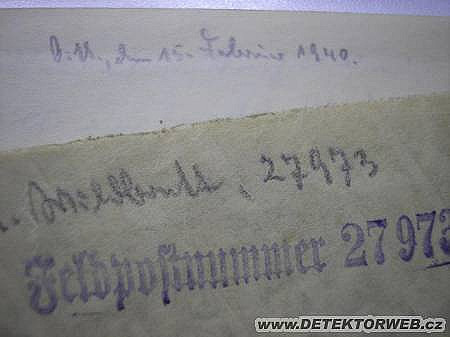 O.U., den 15. Februar 1940.
27973
Feldpostnummer 27 973
WWW.DETEKTORWEB.CZ